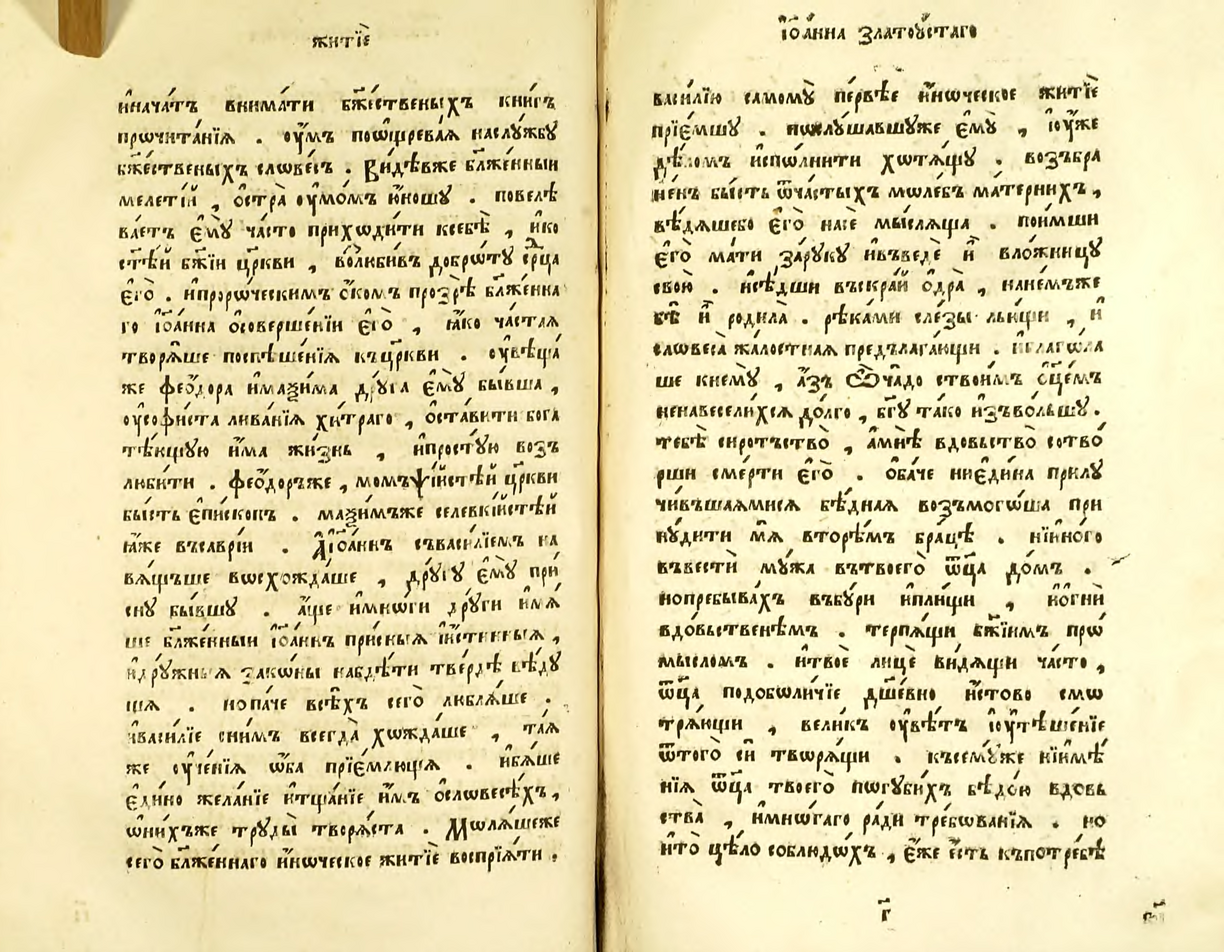 житїѐ
йнача́тъ внима́ти бж҃е́ственыхъ книгъ
прѡчита́нїѧ . оу҆мъ поѡщрева́ѧ наслу́жбу
бж҃ественыхъ слѡве́съ . Ви́дѣвже бл҃же́нныи
меле́тїи , ѻ҆стра̀ оу҆мо́мъ ю҆ношу . повелѣ
ва́етъ є҆му̀ ча́сто прихѡди́ти ксебѣ̀ , ꙗ҆ко
ст҃ѣ́й бж҃їи цр҃кви , во́злюбивъ добрѡ́ту ср҃ца
є҆гѡ̀ . ипрорѡ́ческимъ ѻ҆комъ прозрѣ̀ бл҃же́нна
го і҆ѡа́нна ѻ҆соверше́нїи є҆го̀ , ꙗ҆ко ча́стаѧ
творѧ́ше поспѣше́нїѧ къцр҃кви . оу҆вѣща́
же фео́дора има́ѯима дру́га є҆му̀ бы́вша ,
оу҆софи́ста лива́нїѧ хи́траго , ѻ҆ста́вити бога
тѣ́ющую и҆ма жи́знь , ипросту́ю возъ
люби́ти . фео́доръже , момъѱїи́стѣй цр҃кви
бы́сть є҆пи́скопъ . ма́ѯимъже селевкїи́стѣй
ꙗ҆́же въсаврі́и . А҆і҆ѡа́ннъ съваси́лїемъ на
вѧ́щьше вѡсхожда́ше , дру́гу є҆му̀ при
сну бы́вшу . а҆́ще имнѡ́ги дру́ги и҆мѧ́
ше бл҃же́нныи і҆ѡа́ннъ при́сныѧ и҆́истинныѧ ,
идру́жныѧ зако́ны набдѣ́ти тве́рдѣ вѣ́ду
щѧ . нопа́че всѣ́хъ сего̀ люблѧ́ше .
ꙗ҆васи́лїе сни́мъ всегда̀ хѡжда́ше , та́ѧ
же оу҆че́нїѧ ѡ҆́ба прїе́млюща . ибѧ́ше
є҆ди́но жела́нїе итща́нїе и҆мъ ѻ҆слѡвесѣ́хъ ,
ѡ҆ни́хъже труды̀ творѧ́ста . Мѡлѧ́шеже
сего̀ бл҃же́ннаго и҆́нѡческое житїѐ воспрїѧ́ти .
і҆ѡа́нна златоу́стаго
васи́лїю самому̀ пе́рвѣе и҆́нѡческое житїѐ
прїе́мшу . нѡслу́шавшуже є҆му̀ , іоу҆́же
дѣ́ломъ испѡ́лнити хѡтѧ́щу . возъбра
не́нъ бы́сть ѿча́стыхъ мѡле́бъ ма́тернихъ ,
вѣ́дѧшебо є҆го̀ насѐ мы́слѧща . пои́мши
є҆го̀ ма́ти за́руку ивъведѐ и҆̀ вло́жницу
свою̀ . исѣ́дши въскра́й ѻ҆дра̀ , нане́мъже
бѣ̀ и҆̀ роди́ла . рѣка́ми сле́зы лью́щи , и҆
слѡвеса̀ жа́лостнаѧ предълага́ющи . иглагѡ́ла
ше кнему̀ , а҆́зъ Ѽча́до ствои́мъ ѻ҆ц҃е́мъ
ненавесели́хсѧ до́лго , бг҃у та́ко изъво́льшу .
тебѣ̀ сиротьство̀ , а҆мнѣ̀ вдовьство̀ сотво́
рши сме́рти є҆го̀ . ѻ҆ба́че ниеди́на прилу
чи́въшаѧмисѧ бѣ́днаѧ возъмого́ша при
ну́дити мѧ̀ второ́мъ бра́цѣ . ніи́ного
въвестѝ му́жа вътвоего̀ ѿц҃а до́мъ .
нопребыва́хъ въбу́ри ипли́щи , иѻ҆гнѝ
вдо́вьственѣмъ . терпѧ́щи бж҃їимъ прѡ́
мысломъ . итвоѐ лицѐ ви́дѧщи ча́сто ,
ѿц҃а подобѡли́чїе дш҃е́вно и҆́стово смѡ
трѧ́ющи , вели́къ оу҆вѣ́тъ іоу҆тѣше́нїе
ѿтого̀ сѝ твѡрѧ́щи . късему́же ніимѣ́
нїѧ ѿц҃а твоего̀ пѡгуби́хъ бѣдо́ю вдовь
ства̀ , имно́гаго ра́ди тре́бѡванїѧ . но
ито̀ цѣ́ло соблюдо́хъ , є҆́же є҆́сть къпотре́бѣ
г҃